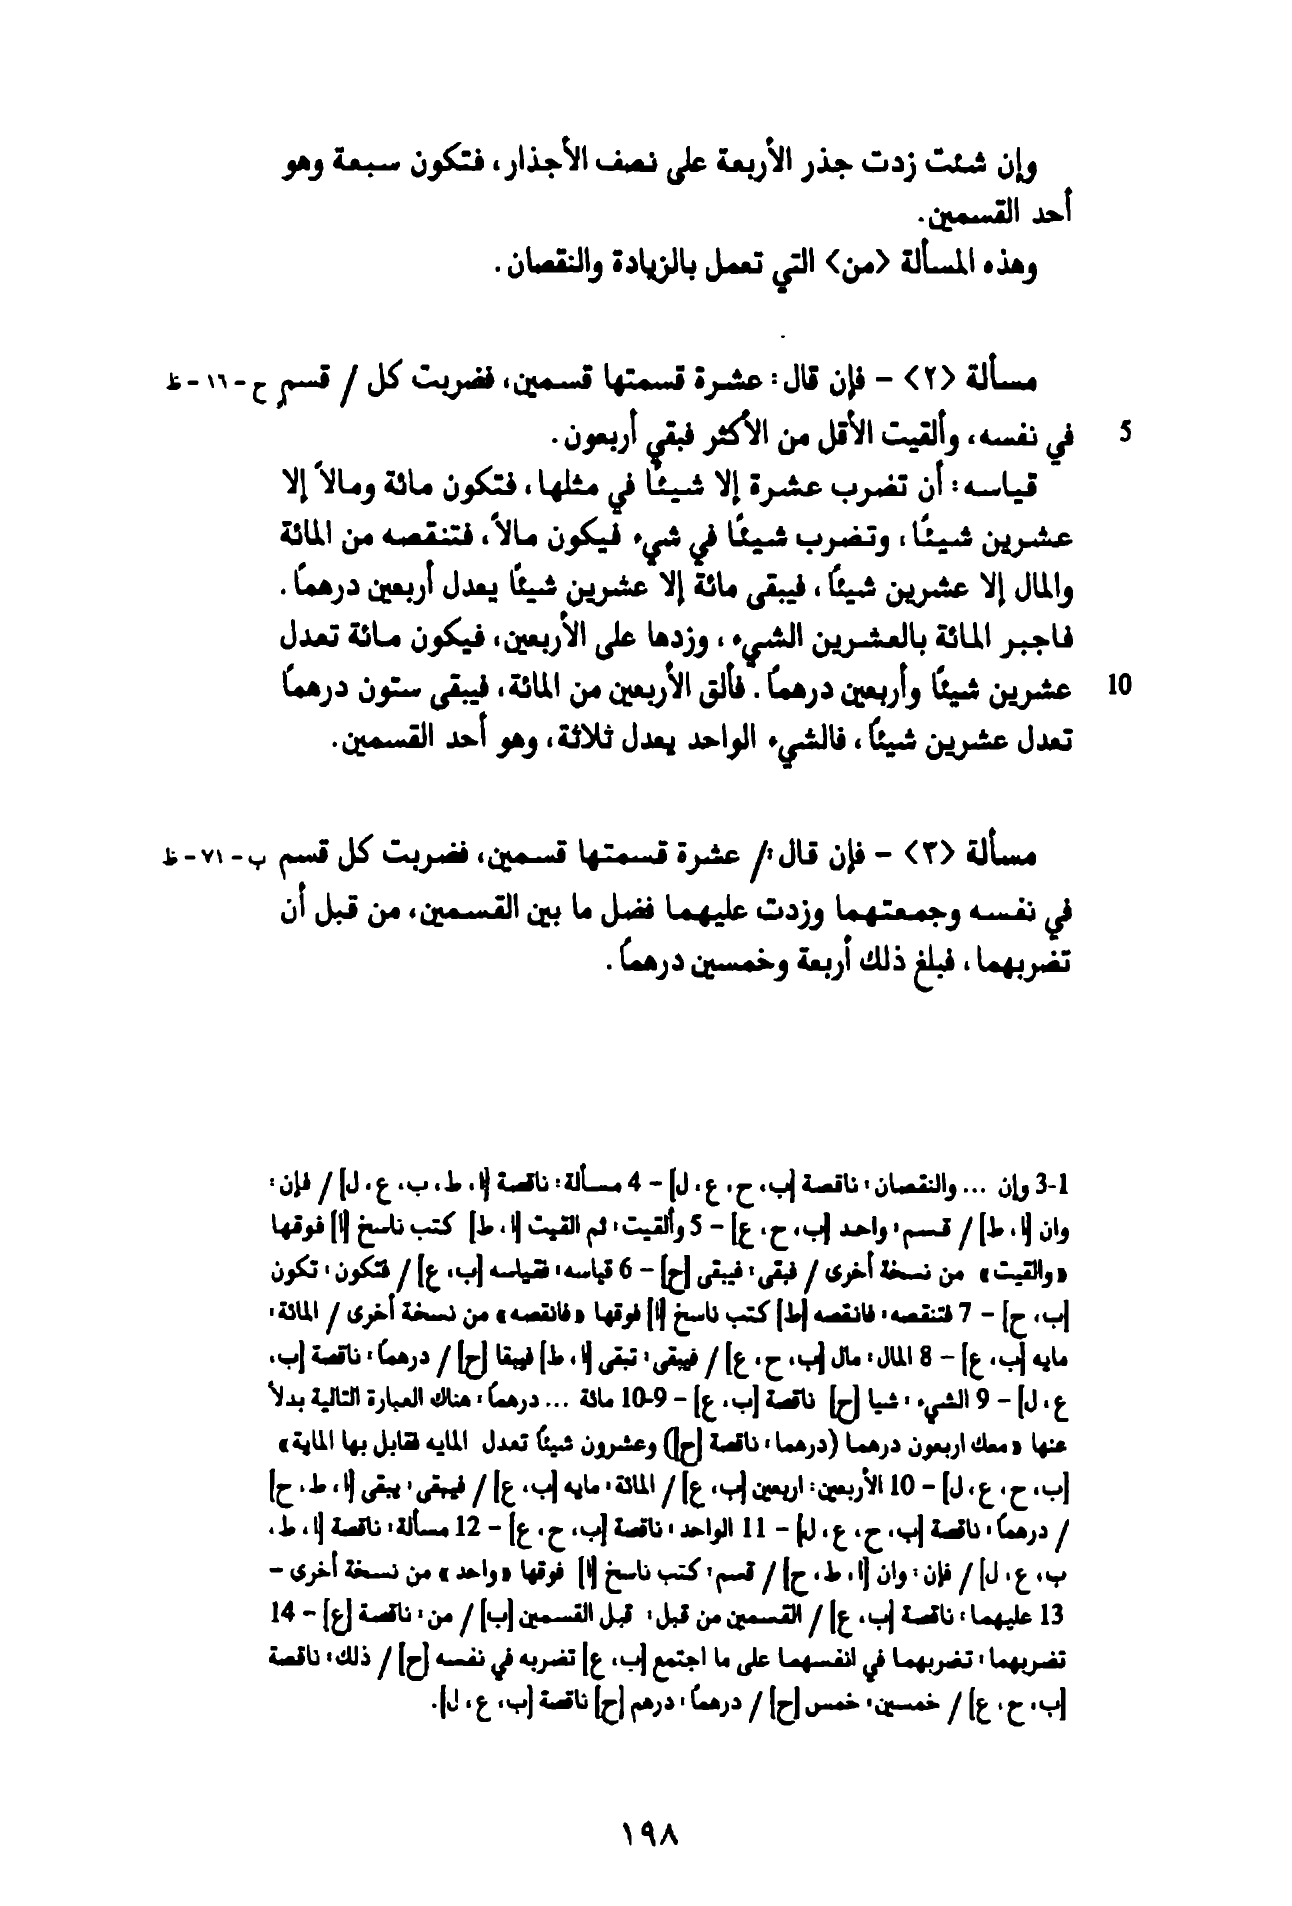 وإن شئت زدت جذر الأربعة على نصف الأجذار، فتكون سبعة وهو
أحد القسمين.
وهذه المسألة <من> التي تعمل بالزيادة والنقصان.
مسألة <٢> – فإن قال: عشرة قسمتها قسمين، فضربت كل / قسم ح - ١٦ - ظ
5 في نفسه، وألقيت الأقل من الأكثر فبقي أربعون.
قياسه: أن تضرب عشرة إلا شيئًا في مثلها، فتكون مائة ومالاً إلا
عشرين شيئًا، وتضرب شيئًا في شيء فيكون مالاً، فتنقصه من المائة
والمال إلا عشرين شيئًا، فيبقى مائة إلا عشرين شيئًا يعدل أربعين درهمًا.
فاجبر المائة بالعشرين الشيء، وزدها على الأربعين، فيكون مائة تعدل
10 عشرين شيئًا وأربعين درهمًا. فألق الأربعين من المائة، فيبقى ستون درهمًا
تعدل عشرين شيئًا، فالشيء الواحد يعدل ثلاثة، وهو أحد القسمين.
مسألة <٣> – فإن قال:/ عشرة قسمتها قسمين، فضربت كل قسم ب - ٧١ - ظ
في نفسه وجمعتهما وزدت عليهما فضل ما بين القسمين، من قبل أن
تضربهما، فبلغ ذلك أربعة وخمسين درهمًا.
3-1 وإن ... والنقصان: ناقصة [ب، ح، ع، ل] – 4 مسألة: ناقصة [ا، ط، ب، ع، ل] / فإن:
وان [ا، ط] / قسم: واحد [ب، ح، ع] – 5 وألقيت: ثم القيت [ا، ط] كتب ناسخ [ا] فوقها
«والقيت» من نسخة أخرى / فبقي: فيبقى [ح] – 6 قياسه: فقياسه [ب، ع] / فتكون: تكون
[ب، ح] – 7 فتنقصه: فانقصه [ط] كتب ناسخ [ا] فوقها «فانقصه» من نسخة أخرى / المائة:
مايه [ب، ع] – 8 المال: مال [ب، ح، ع] / فيبقى: تبقى [ا، ط] فيبقا [ح] / درهمًا: ناقصة [ب،
ع، ل] – 9 الشيء: شيا [ح] ناقصة [ب، ع] – 9-10 مائة ... درهمًا: هناك العبارة التالية بدلاً
عنها «معك اربعون درهما (درهما: ناقصة [ح]) وعشرون شيئًا تعدل المايه فقابل بها الماية»
[ب، ح، ع، ل] – 10 الأربعين: اربعين [ب، ع] / المائة: مايه [ب، ع] / فيبقى: يبقى [ا، ط، ح]
/ درهمًا: ناقصة [ب، ح، ع، ل] – 11 الواحد: ناقصة [ب، ح، ع] – 12 مسألة: ناقصة [ا، ط،
ب، ع، ل] / فإن: وان [ا، ط، ح] / قسم: كتب ناسخ [ا] فوقها «واحد» من نسخة أخرى –
13 عليهما: ناقصة [ب، ع] / القسمين من قبل: قبل القسمين [ب] / من: ناقصة [ع] – 14
تضربهما: تضربهما في انفسهما على ما اجتمع [ب، ع] تضربه في نفسه [ح] / ذلك: ناقصة
[ب، ح، ع] / خمسين: خمس [ح] / درهمًا: درهم [ح] ناقصة [ب، ع، ل].
١٩٨